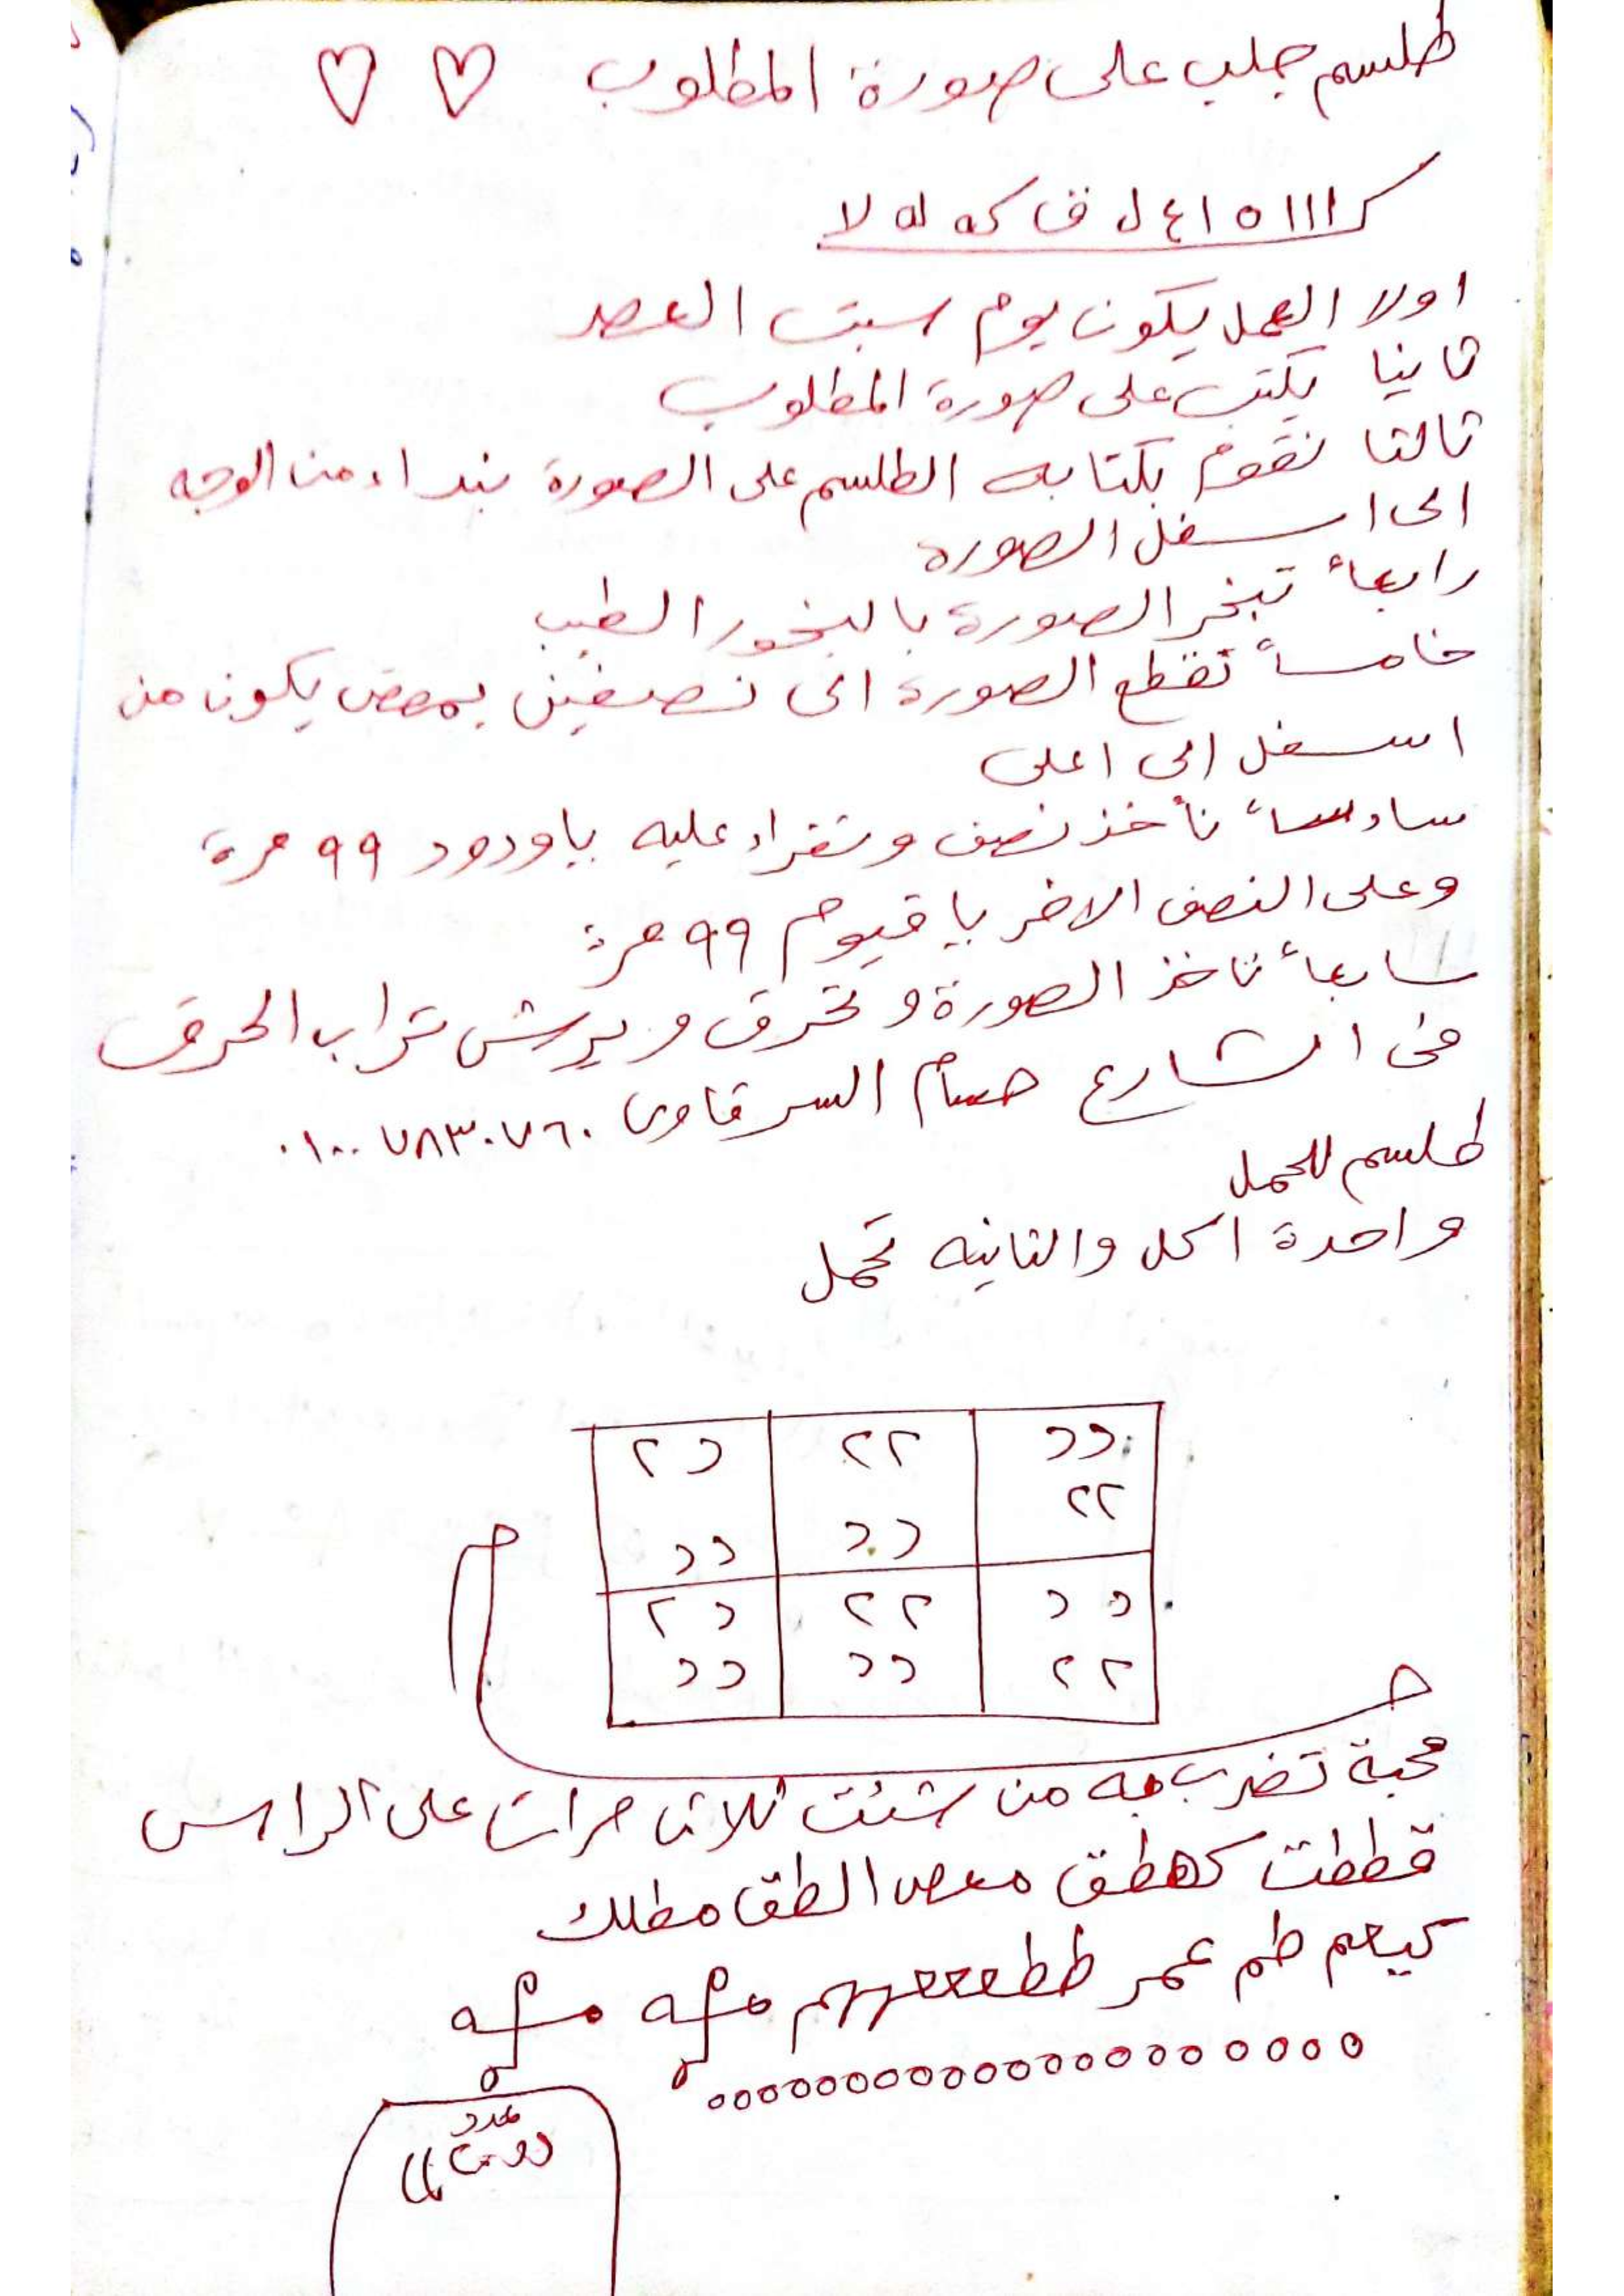 طلسم جلب على صورة المطلوب ♡ ♡
ااا ٥ ا ع ل ف كه له لا
اولا العمل يكون يوم سبت العصر
ثانيا يكتب على صورة المطلوب
ثالثا نقوم بكتابه الطلسم على الصورة بنداء من الوجه
الى اسفل الصوره
رابعاً تبخر الصورة بالبخور الطيب
خامساً تقطع الصورة الى نصفين بمقص يكون من
اسفل الى اعلى
سادساً نأخذ نصف وتقراء عليه ياودود ٩٩ مرة
وعلى النصف الاخر يا قيوم ٩٩ مرة
سابعاً تاخذ الصورة و تحرق ويرش تراب الحرق
فى الشارع حسام السرقاوى ٠١٠٠٧٨٣٠٧٦٠
طلسم للحمل
واحدة اكل والثانيه تحمل
دد ٢٢ د٢
٢٢ دد دد
دد ٢٢ د٢
٢٢ دد دد
محبة تضرب به من شئت ثلاث مرات على الراس
قططت كهطق معص الطق مطلك
طم عمر